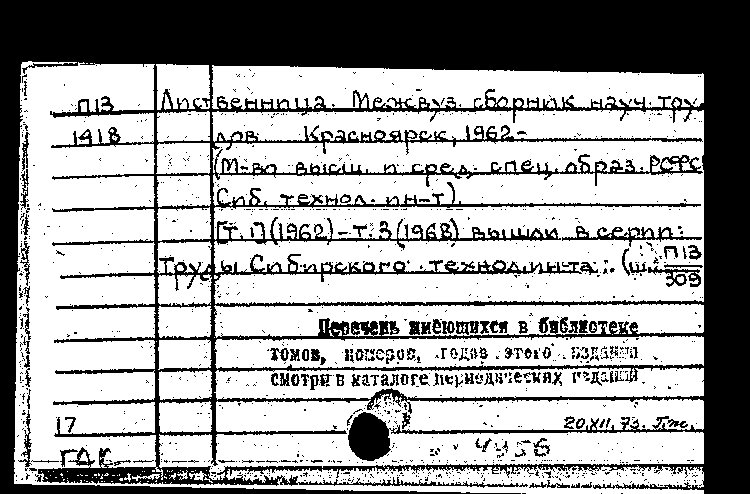 П13 Лиственница. Межвуз. сборник науч. тру-
1418 дов. Красноярск, 1962-
(М-во высш. и сред. спец. образ. РСФСР
Сиб. технол. ин-т).
[Т. 1] (1962) - т. 3 (1968) вышли в серии:
Труды Сибирского технол. ин-та. (ш. П13
309
Перечень имеющихся в библиотеке
томов, номеров, годов этого издания
смотри в каталоге периодических изданий
17 20.XII.73.
4956